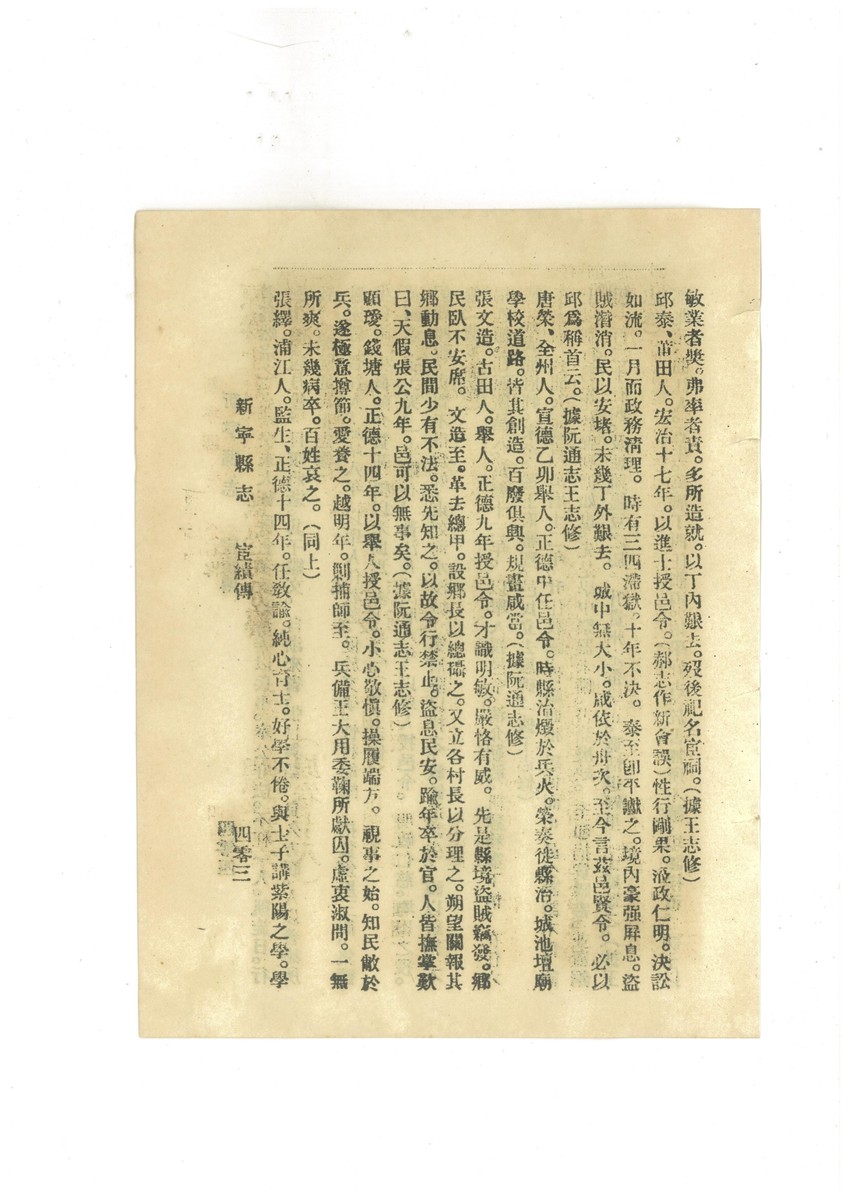 敏業者奬。弗率者責。多所造就。以丁內艱去。歿後祀名宦祠。(據王志修)
邱泰、莆田人。宏治十七年。以進士授邑令。(郝志作新會誤)性行剛果。涖政仁明。決訟
如流。一月而政務淸理。時有三四滯獄。十年不決。泰至卽平讞之。境內豪强屏息。盜
賊潛消。民以安堵。未幾丁外艱去。城中無大小。咸依於舟次。至今言茲邑賢令。必以
邱爲稱首云。(據阮通志王志修)
唐榮、全州人。宣德乙卯舉人。正德中任邑令。時縣治燬於兵火。榮奏徙縣治。城池壇廟
學校道路。皆其創造。百廢俱興。規畫咸當。(據阮通志修)
張文造。古田人。舉人。正德九年授邑令。才識明敏。嚴恪有威。先是縣境盜賊竊發。鄉
民臥不安席。文造至。革去總甲。設鄉長以總攝之。又立各村長以分理之。朔望關報其
鄉動息。民間少有不法。悉先知之。以故令行禁止。盜息民安。踰年卒於官。人皆撫掌歎
曰、天假張公九年。邑可以無事矣。(據阮通志王志修)
顧璦。錢塘人。正德十四年。以舉人授邑令。小心敬愼。操履端方。視事之始。知民敝於
兵。遂極意撙節。愛養之。越明年。剿捕師至。兵備王大用委鞠所獻囚。虛衷淑問。一無
所爽。未幾病卒。百姓哀之。(同上)
張繹。浦江人。監生、正德十四年。任敎諭。純心育士。好學不倦。與士子講紫陽之學。學
新寧縣志 宦績傳 四零三